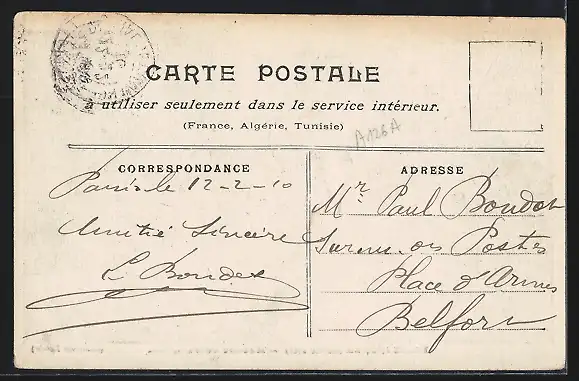 CARTE POSTALE
à utiliser seulement dans le service intérieur.
(France, Algérie, Tunisie)
A126A
CORRESPONDANCE
Paris le 12-2-10
Amitié Sincère
L Boudot
ADRESSE
Mr Paul Boudot
Surnu. des Postes
Place d'Armes
Belfort